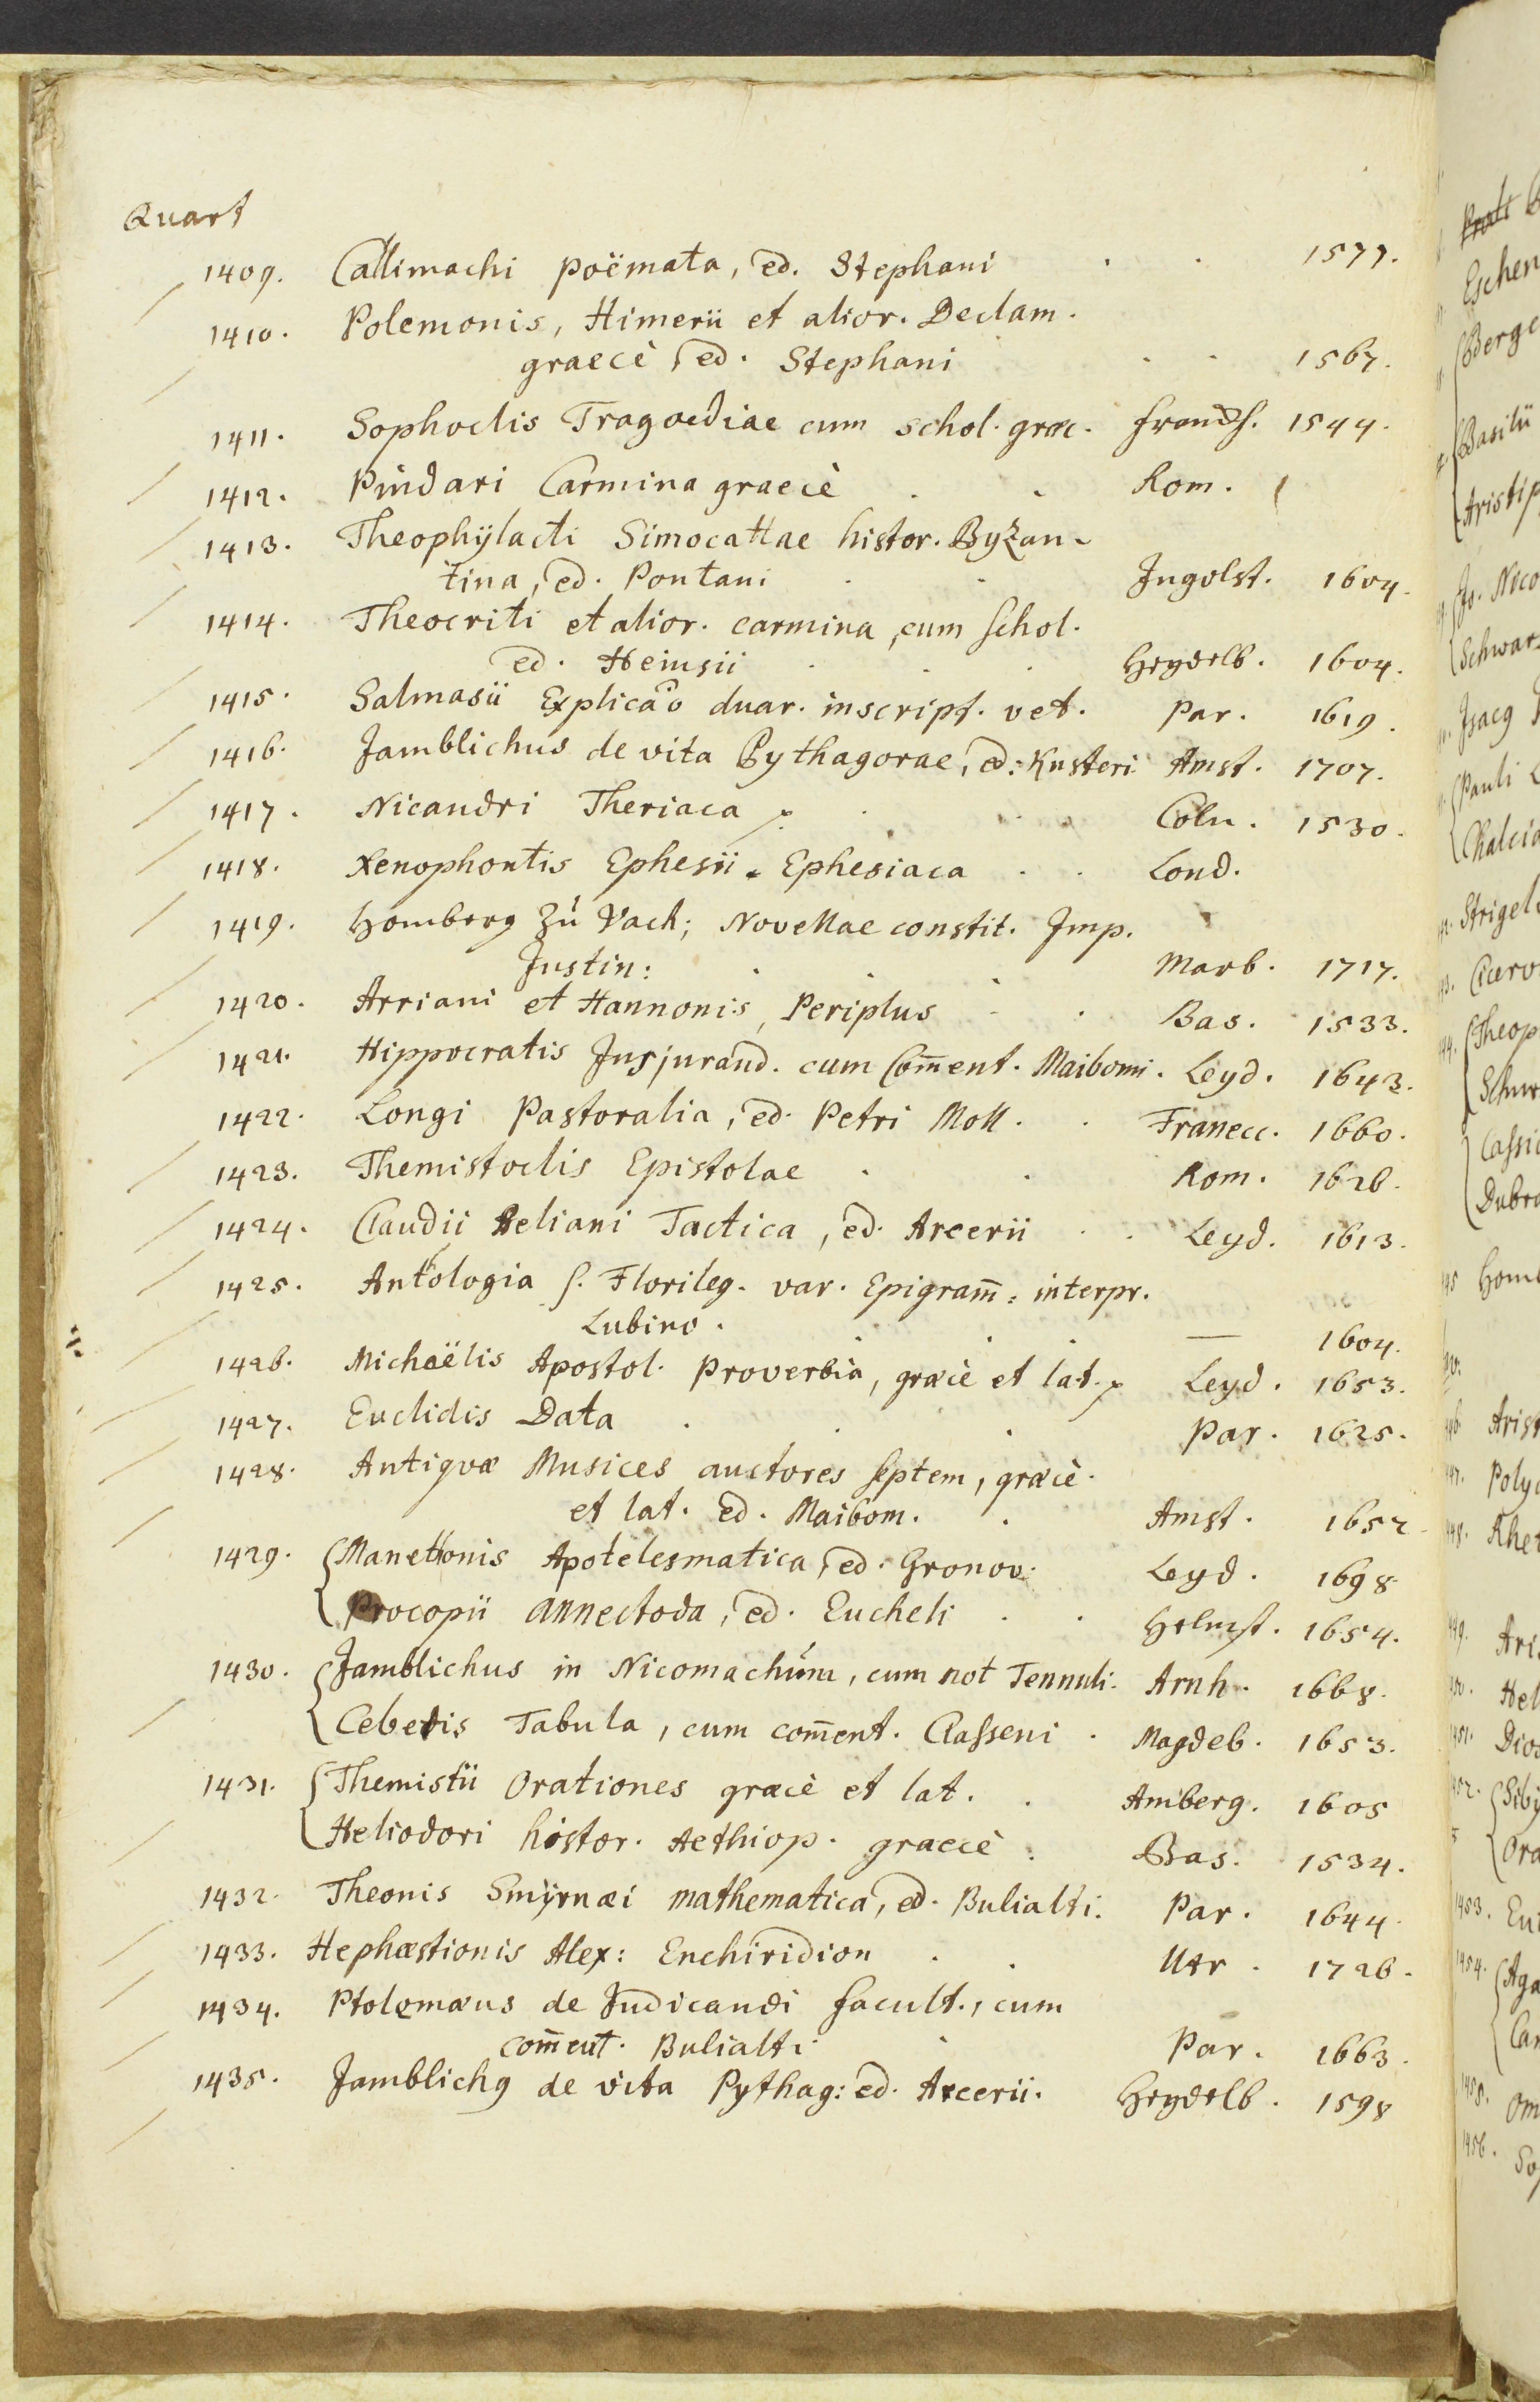 Quart
1409. Callimachi poëmata, ed. Stephani . . 1577.
1410. Polemonis, Himerii et alior. Declam.
graecè, ed. Stephani . . 1567.
1411. Sophoclis Tragoediae cum schol. græc. Francf. 1544.
1412. Pindari Carmina graecè . . Rom.
1413. Theophÿlacti Simocattae histor. Byzan-
tina, ed. Pontani . . Ingolst. 1604.
1414. Theocriti et alior. carmina, cum schol.
ed. Heinsii . . . Heydelb. 1604.
1415. Salmasii Explicão duar. inscript. vet. Par. 1619.
1416. Jamblichus de vita Pythagorae, ed: Kusteri Amst. 1707.
1417. Nicandri Theriaca . . Coln. 1530.
1418. Xenophontis Ephesii. Ephesiaca . . Lond.
1419. Homberg zu Vach; Novellae constit. Imp.
Justin: . . . Marb. 1717.
1420. Arriani et Hannonis, Periplus . . Bas. 1533.
1421. Hippocratis Jusjurand. cum Com̄ent. Maibomi. Leyd. 1643.
1422. Longi Pastoralia, ed. Petri Moll. . Franecc. 1660.
1423. Themistoclis Epistolae . . Rom. 1626.
1424. Claudii Aeliani Tactica, ed. Arcerii . . Leyd. 1613.
1425. Anthologia s. Florileg. var. Epigram̄: interpr.
Lubino. . . . — 1604.
1426. Michaëlis Apostol. Proverbia, græcè et lat. Leyd. 1653.
1427. Euclidis Data . . . Par. 1625.
1428. Antiqvæ Musices auctores septem, græcè.
et lat. ed. Maibom. . Amst. 1652
1429. Manethonis Apotelesmatica, ed. Gronov. Leyd. 1698.
Procopii Annectoda, ed. Eucheli . . Helmst. 1654.
1430. Jamblichus in Nicomachúm, cum not Tennuli. Arnh. 1668.
Cebetis Tabula, cum com̄ent. Classeni . Magdeb. 1653.
1431. Themistii Orationes græcè et lat. . Amberg. 1605
Heliodori histor. Aethiop. graecè . Bas. 1534.
1432. Theonis Smÿrnæi mathematica, ed. Bulialti. Par. 1644.
1433. Hephæstionis Alex: Enchiridion . . Utr. 1726.
1434. Ptolemæus de Judicandi facult., cum
com̄ent. Bulialti . Par. 1663.
1435. Jamblichg de vita Pythag: ed. Arcerii. Heydelb. 1598
Eschen
Berge
Basilii
Aristip
Jo. Nico
Schwar
Isacg
Pauli
Chalcid
Strigel
Cicero
Theop
Schw
Cassio
Dubra
Homb
Arist
Poly
Rhet
Aris
Hel
Dios
Siby
Ora
1453. Eu
1454. Aga
Can
Om
1456. So